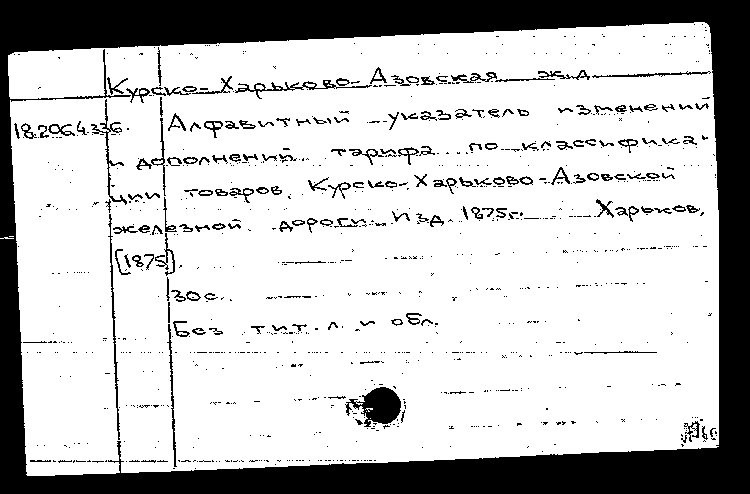 Курско-Харьково-Азовская ж.д.
18.206.4.336. Алфавитный указатель изменений
и дополнений тарифа по классифика-
ции товаров Курско-Харьково-Азовской
железной дороги. Изд. 1875г. Харьков,
[1875].
30с.
Без тит. л. и обл.